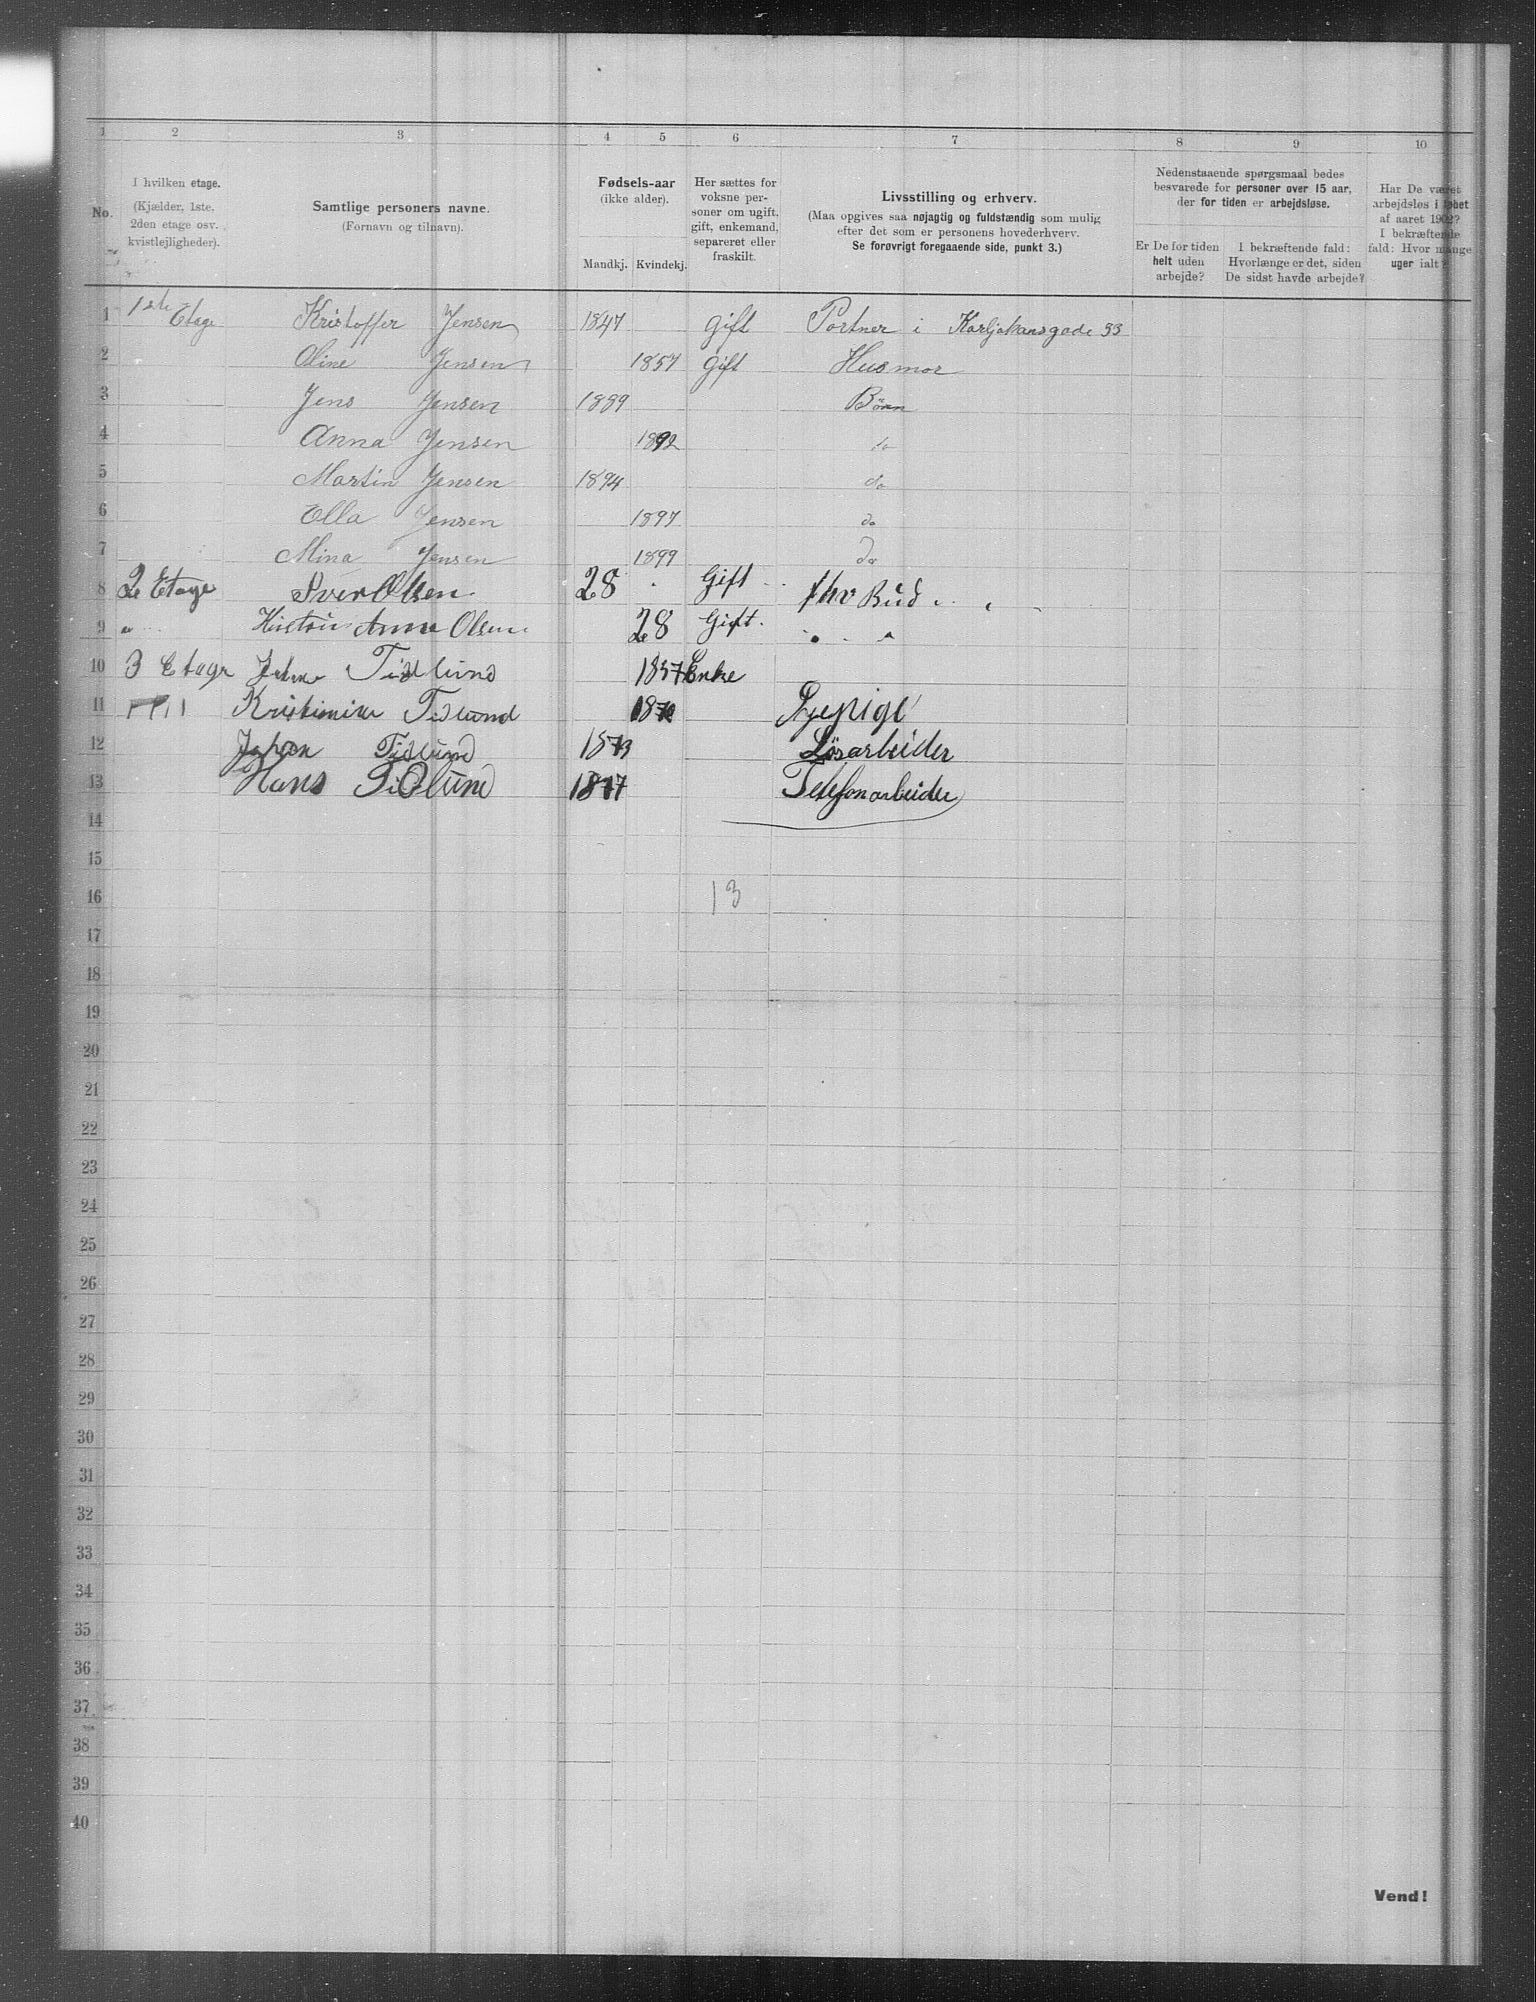 1 2 3 4 5 6 7 8 9 10
No.
I hvilken etage.
(Kjælder, 1ste.
2den etage osv.
kvistlejligheder).
Samtlige personers navne.
(Fornavn og tilnavn).
Fødsels-aar
(ikke alder).
Mandkj. Kvindekj.
Her sættes for
voksne per-
soner om ugift,
gift, enkemand,
separeret eller
fraskilt.
Livsstilling og erhverv.
(Maa opgives saa nøjagtig og fuldstændig som mulig
efter det som er personens hovederhverv.
Se forøvrigt foregaaende side, punkt 3.)
Nedenstaaende spørgsmaal bedes
besvarede for personer over 15 aar,
der for tiden er arbejdsløse.
Er De for tiden
helt uden
arbejde?
I bekræftende fald:
Hvorlænge er det, siden
De sidst havde arbejde?
Har De været
arbejdsløs i løbet
af aaret 1902?
I bekræftende
fald: Hvor mange
uger ialt?
1 1ste Etage Kristoffer Jensen 1847 Gift Portner i Karljohansgade 33
2 Oline Jensen 1857 Gift Husmor
3 Jens Jensen 1889 Børn
4 Anna Jensen 1892 do
5 Martin Jensen 1894 do
6 Ella Jensen 1897 do
7 Mina Jensen 1899 do
8 2 Etage Iver Olsen 28 Gift Bud
9 " Anna Olsen 28 Gift "
10 3 Etage Tidlund 1837 Enke
11 Kristinine Tidlund Sypige
12 Johan Tidlund 1873 Løsarbeider
13 Hans Tidlund 1877 Telefonarbeider
14
15
16 13
17
18
19
20
21
22
23
24
25
26
27
28
29
30
31
32
33
34
35
36
37
38
39
40
Vend!